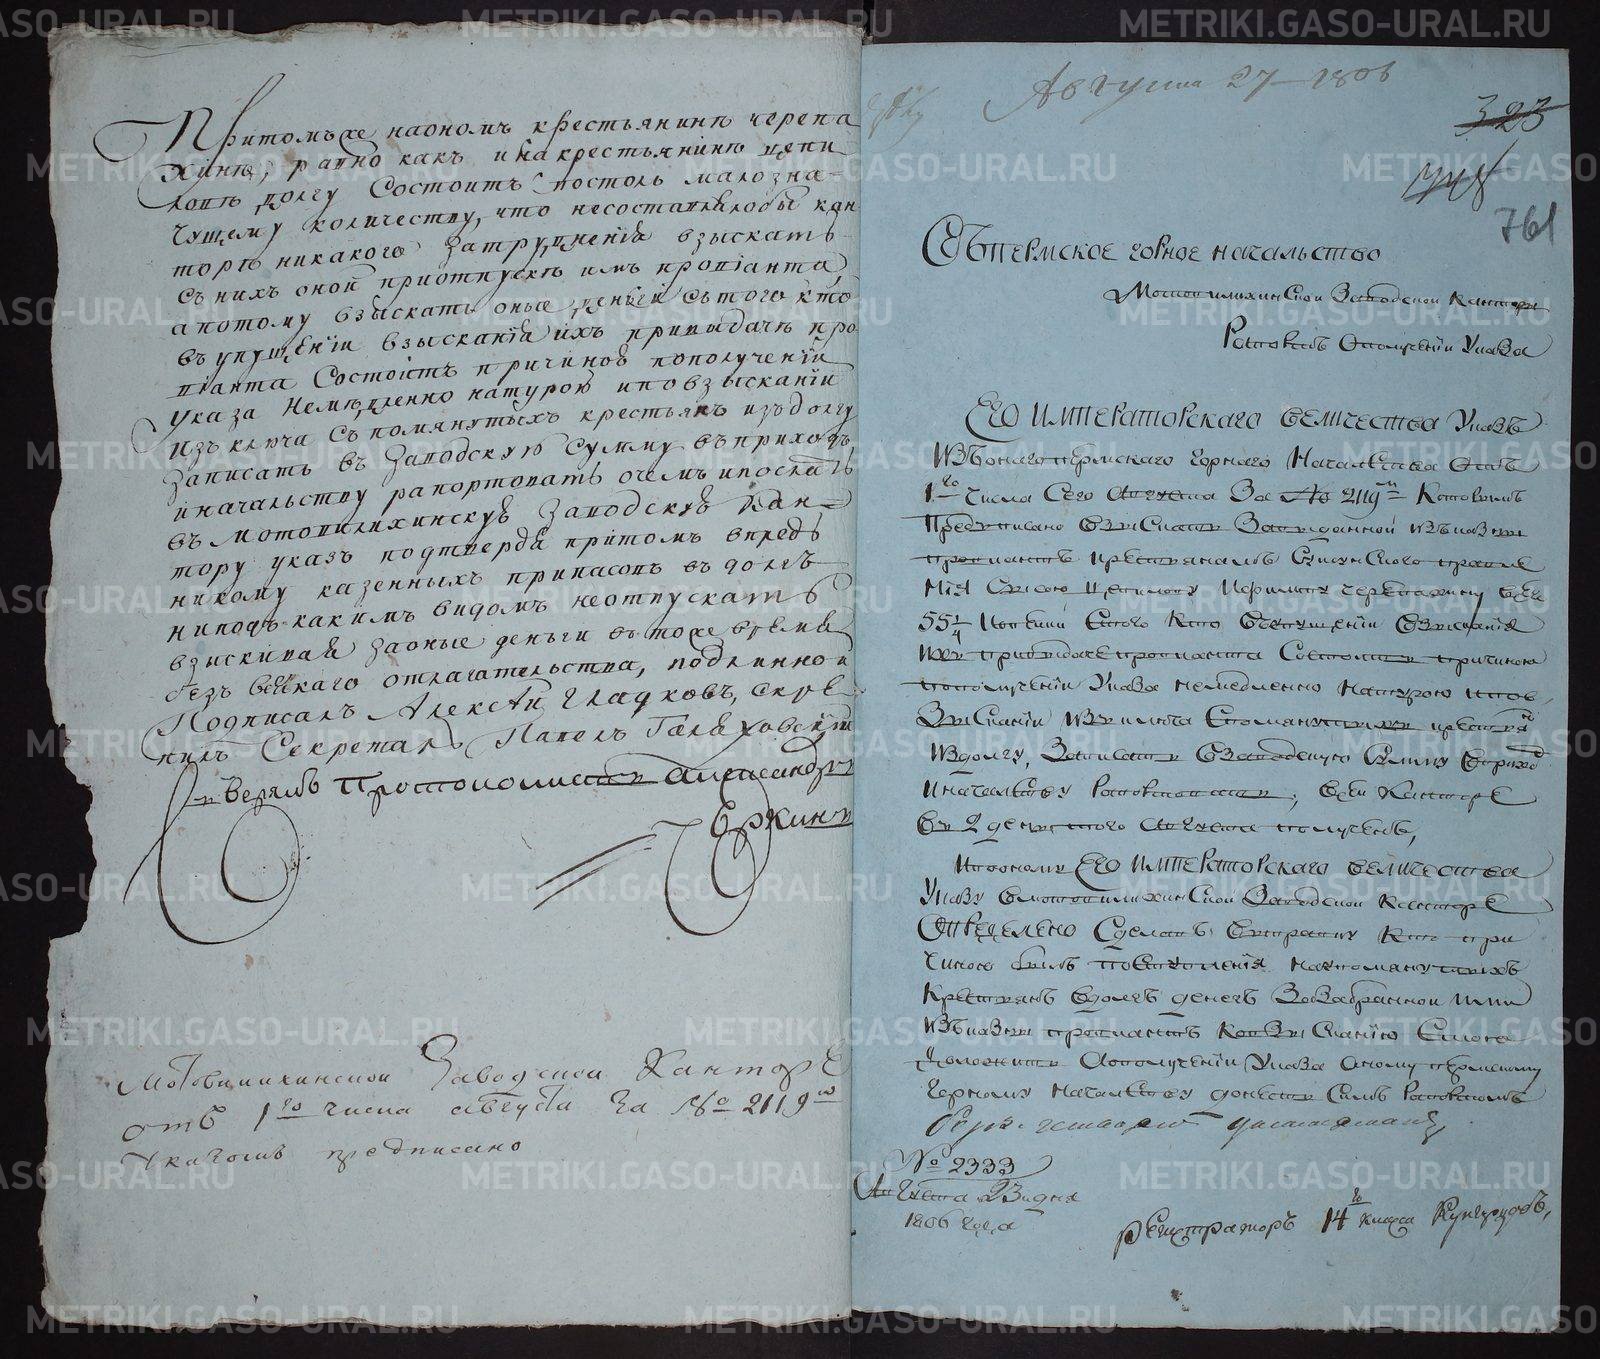 Притомъже наономъ крестьянинѣ черепа
хинѣ, равно какъ и накрестьянинѣ цепи
ловѣ долгу Состоитъ постоль малозна-
чущему количеству, что несоставилобы кон
торѣ никакого затруднения взыскать
съ нихъ оной приотпускѣ имъ провианта,
апотому взыскать оные деньги стого кто
въ упущении взыскания ихъ привыдачѣ про
вианта Состоитъ причиною пополучении
указа Немѣдленно натурою иповзыскании
изъ ключа Съ помянутыхъ крестьянъ изъ долгу
записать въ Заводскую Сумму въприходъ
иначальству рапортовать очемъ ипослать
въ мотовилихинскую Заводскую Кан-
тору указъ подтвердя притомъ впредь
никому казенныхъ припасовъ въ долгъ
ниподъ какимъ видомъ неотпускать
взыскивая заоные деньги втоже время
безъ всякаго отлагательства, подлинной
Подписалъ Алексѣй Гладковъ, скре
пилъ Секретарь Павелъ Галяховский
Сверялъ Протоколистъ Александръ
Еркинъ
Мотовилихинской Заводской Канторѣ
отъ 1го числа августа за № 2119м
Указомъ предписано
Августа 27 1806
323
761
Въ Пермское горное начальство
Мотовилихинской Заводской Канторы
Рапортъ Ополучении Указа
Его Императорскаго величества Указъ
Изъ онаго пермскаго горнаго Начальства Отъ
1го числа Сего Августа За № 2119м Которымъ
Предписано Взыскать За выданной изъ казны
провиантъ крестьянамъ
55 1/4 Копѣйки Стого Кто Вопущении Взыскания
ихъ привыдаче провианта Состоитъ причиною
пополучении Указа немедленно натурою ипов
Зыскании изъ ключа Спомянутыхъ крестьянъ
Издолгу, Записать Взаводскую Сумму Вприход
Иначальству Рапортовать, Въ Канторе
Въ 2 день того Августа полученъ,
Ипооному Его Императорскаго величества
Указу Вмотовилихинской Заводской канторе
Определено Сделать Выправку Кто при
чиною былъ напомянутыхъ
Крестьянъ Вдолгъ денегъ Зазабранной ими
Изъ казны провиантъ Ковзысканию Стого
Доложить Аополучении Указа Оному пермскому
Горному начальству донесть Симъ Рапортомъ
№ 2333
Августа 23 дня
1806 года
Регистраторъ 14го класа Кунгурцовъ,